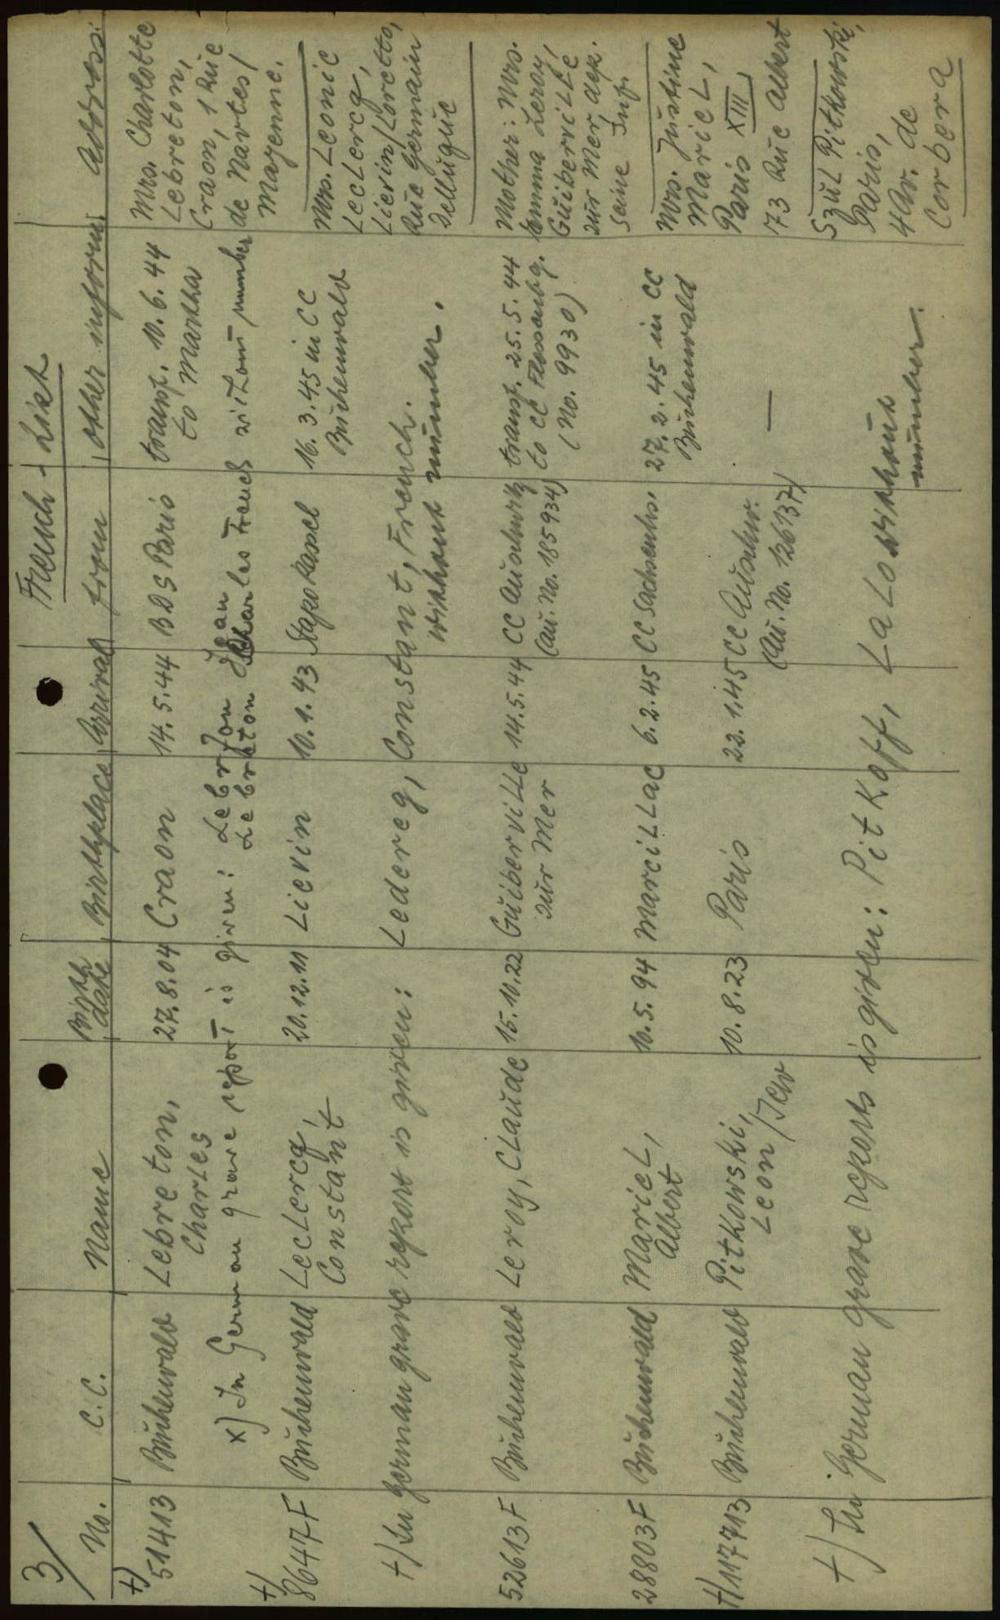 3/
French-List
No. C.C. Name Birthdate Birthplace Arrival from other inform. Address:
+) 51413 Buchenwald Lebreton, Charles 27.8.04 Craon 14.5.44 BDS Paris transp. 10.6.44 to Martha Mrs. Charlotte Lebreton, Craon, 1 Rue de Nartes/ Mayenne.
x) In German grave report is given: Lebrton Jean
Lebreton Charles French without number
+) 8647F Buchenwald Leclercq, Constant 20.12.11 Lievin 10.1.43 Stapo Kassel 16.3.45 in CC Buchenwald Mrs. Leonie Leclercq, Lievin/Loretto, Rue Germain Dellugue
+) In German grave report is given: Ledereg, Constant, French.
without number.
52613F Buchenwald Leroy, Claude 15.10.22 Guiberville sur Mer 14.5.44 CC Auschwitz (Au. No. 185934) transp. 25.5.44 to CC Flossenbg. (No. 9930) Mother: Mrs. Emma Leroy, Guiberville sur Mer dep. Seine Inf.
28803F Buchenwald Mariel, Albert 10.5.94 Marcillac 6.2.45 CC Sachsenhs. 27.2.45 in CC Buchenwald Mrs. Justine Mariel, Paris XIII, 73 Rue Albert
+) 117713 Buchenwald Pitkowski, Leon /Jew 10.8.23 Paris 22.1.45 CC Auschw. (Au. No. 126137) — Szul Pitkowski, Paris, 4 Av. de Corbera
+) In German grave reports is given: Pitkoff, Lalo without
number.